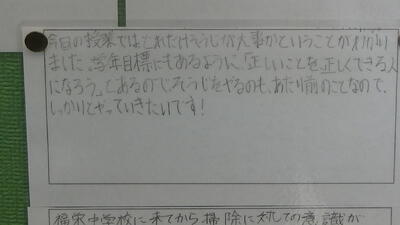 今日の授業ではどれだけそうじが大事かということがわかり
ました。学年目標にもあるように、「正しいことを正しくできる人
になろう」とあるのでそうじをやるのも、あたり前のことなので、
しっかりとやっていきたいです!
福栄中学校に来てから掃除に対しての意識が